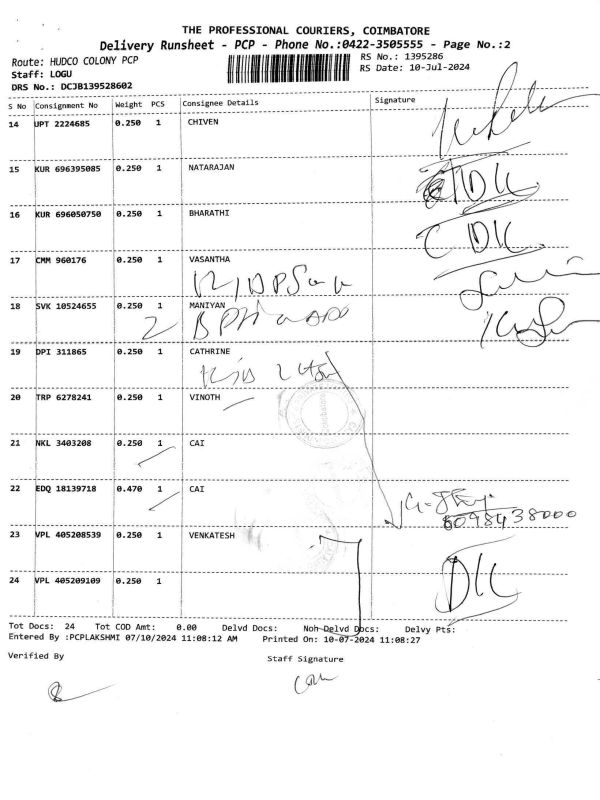 THE PROFESSIONAL COURIERS, COIMBATORE
Delivery Runsheet - PCP - Phone No.:0422-3505555 - Page No.:2
Route: HUDCO COLONY PCP
RS No.: 1395286
Staff: LOGU
RS Date: 10-Jul-2024
DRS No.: DCJB139528602
S No Consignment No Weight PCS Consignee Details Signature
14 UPT 2224685 0.250 1 CHIVEN
15 KUR 696395085 0.250 1 NATARAJAN
16 KUR 696050750 0.250 1 BHARATHI
17 CMM 960176 0.250 1 VASANTHA
18 SVK 10524655 0.250 1 MANIYAN
19 DPI 311865 0.250 1 CATHRINE
20 TRP 6278241 0.250 1 VINOTH
21 NKL 3403208 0.250 1 CAI
22 EDQ 18139718 0.470 1 CAI
23 VPL 405208539 0.250 1 VENKATESH
24 VPL 405209109 0.250 1
Tot Docs: 24 Tot COD Amt: 0.00 Delvd Docs: Non Delvd Docs: Delvy Pts:
Entered By :PCPLAKSHMI 07/10/2024 11:08:12 AM Printed On: 10-07-2024 11:08:27
Verified By
Staff Signature